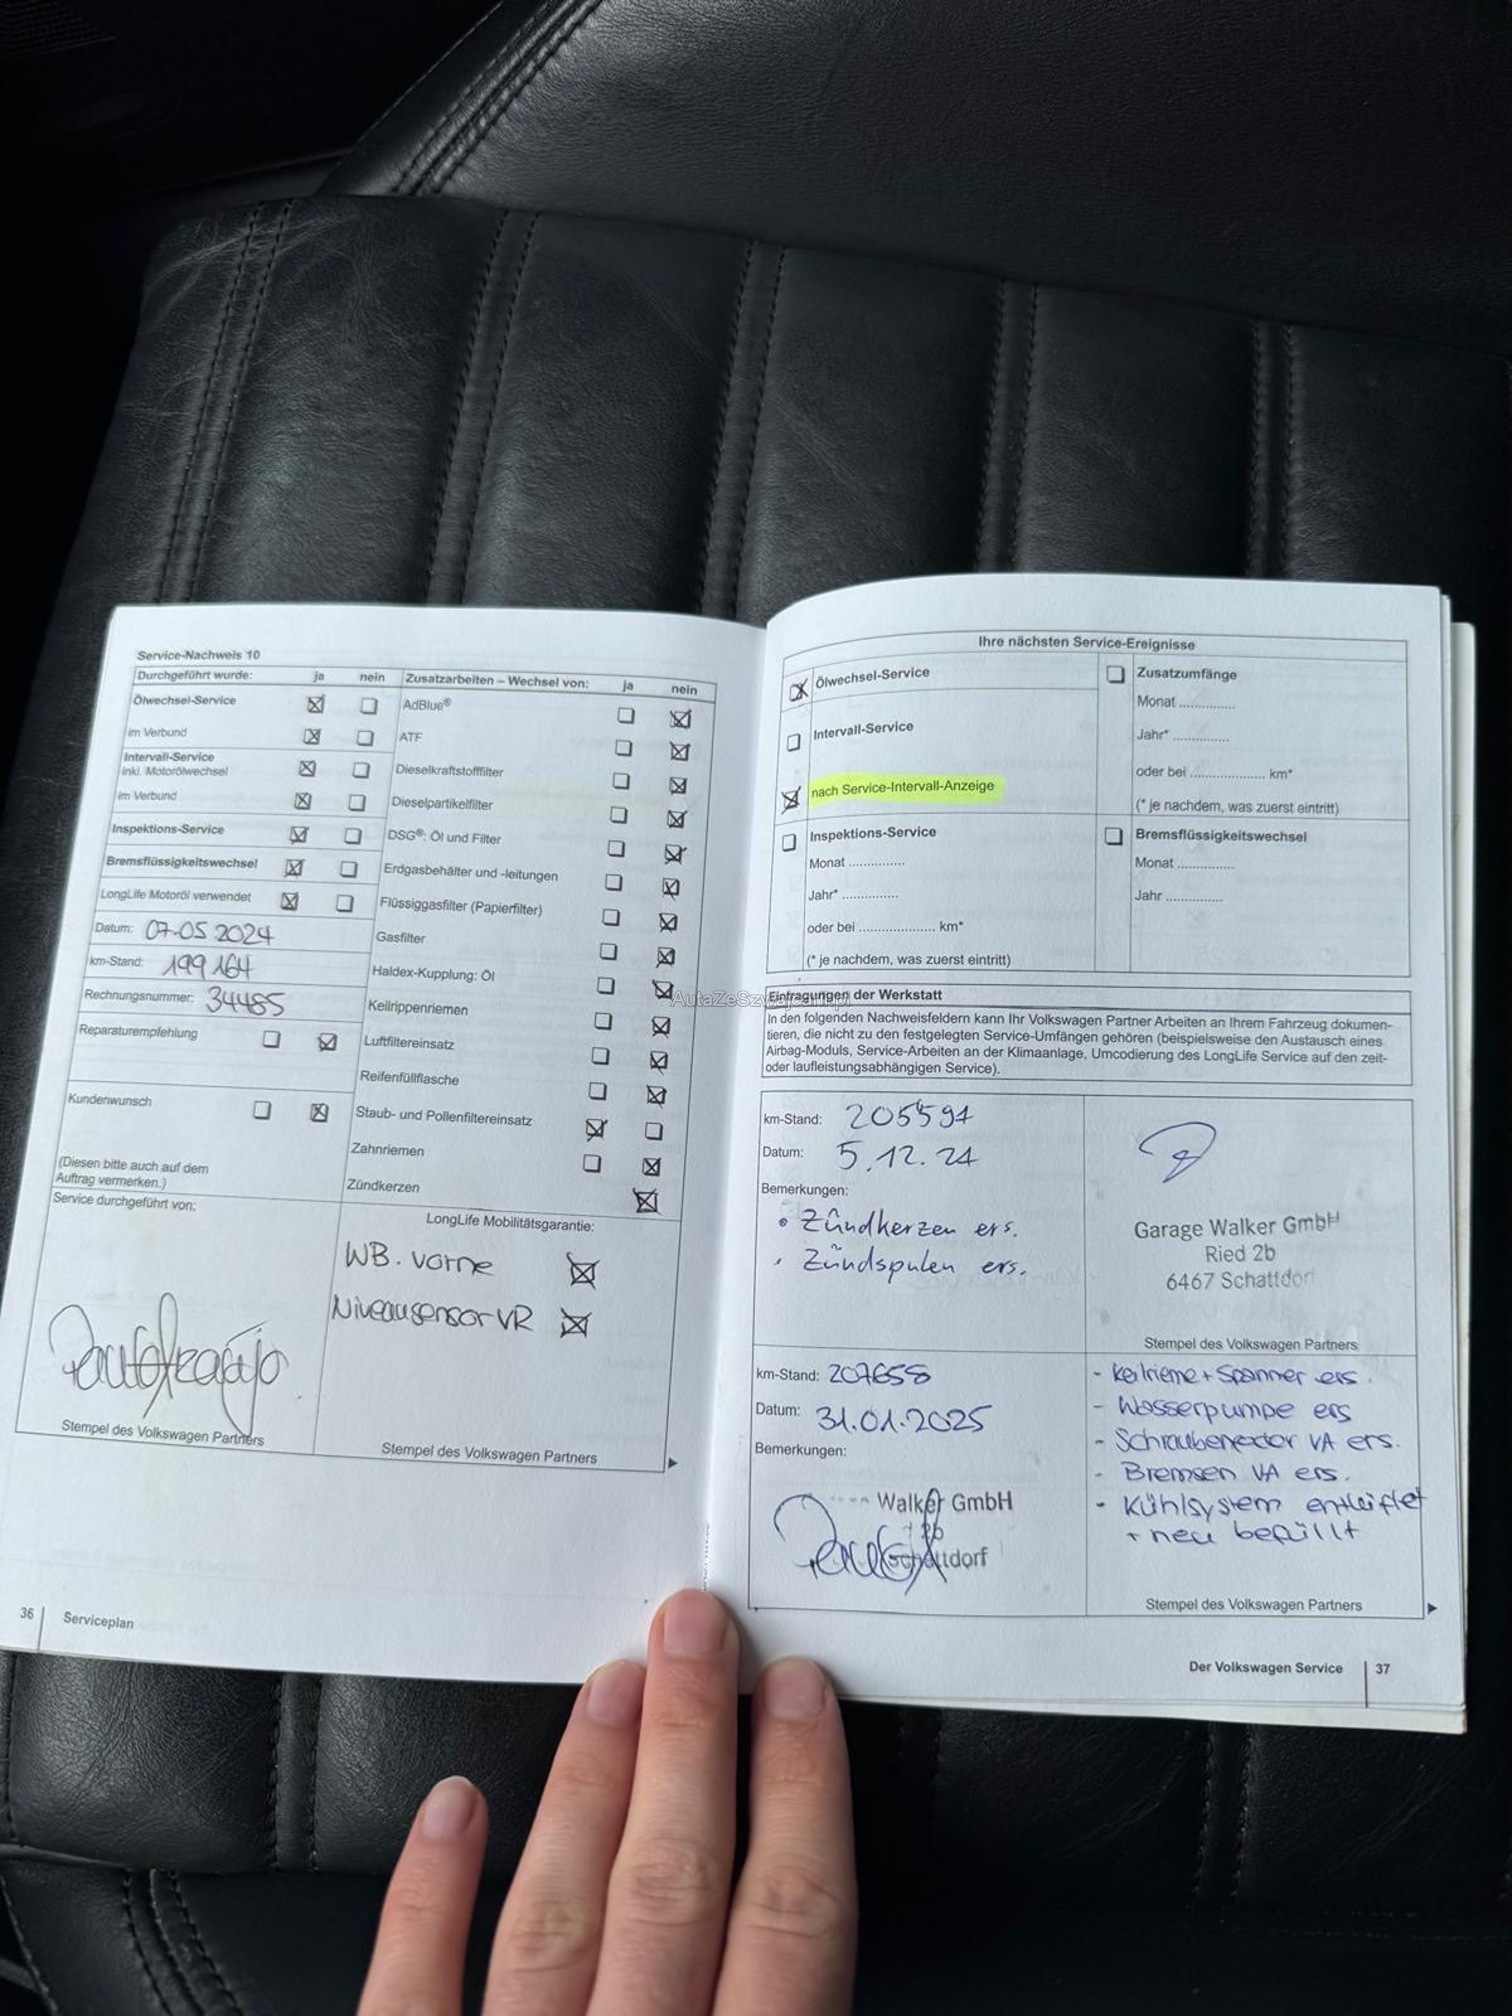 Service-Nachweis 10
Durchgeführt wurde: ja nein
Ölwechsel-Service
im Verbund
Intervall-Service
inkl. Motorölwechsel
im Verbund
Inspektions-Service
Bremsflüssigkeitswechsel
LongLife Motoröl verwendet
Datum: 07.05.2024
km-Stand: 199164
Rechnungsnummer: 34485
Reparaturempfehlung
Kundenwunsch
(Diesen bitte auch auf dem
Auftrag vermerken.)
Service durchgeführt von:
Stempel des Volkswagen Partners
Zusatzarbeiten – Wechsel von: ja nein
AdBlue®
ATF
Dieselkraftstofffilter
Dieselpartikelfilter
DSG®: Öl und Filter
Erdgasbehälter und -leitungen
Flüssiggasfilter (Papierfilter)
Gasfilter
Haldex-Kupplung: Öl
Keilrippenriemen
Luftfiltereinsatz
Reifenfüllflasche
Staub- und Pollenfiltereinsatz
Zahnriemen
Zündkerzen
LongLife Mobilitätsgarantie:
WB. vorne
Niveausensor VR
Stempel des Volkswagen Partners
36 Serviceplan
Ihre nächsten Service-Ereignisse
Ölwechsel-Service
Intervall-Service
nach Service-Intervall-Anzeige
Inspektions-Service
Monat ...............
Jahr* ...............
oder bei .................... km*
(* je nachdem, was zuerst eintritt)
Zusatzumfänge
Monat ...............
Jahr* ...............
oder bei .................... km*
(* je nachdem, was zuerst eintritt)
Bremsflüssigkeitswechsel
Monat ...............
Jahr ...............
AutaZeSzwajcarii.pl
Eintragungen der Werkstatt
In den folgenden Nachweisfeldern kann Ihr Volkswagen Partner Arbeiten an Ihrem Fahrzeug dokumen-
tieren, die nicht zu den festgelegten Service-Umfängen gehören (beispielsweise den Austausch eines
Airbag-Moduls, Service-Arbeiten an der Klimaanlage, Umcodierung des LongLife Service auf den zeit-
oder laufleistungsabhängigen Service).
km-Stand: 205591
Datum: 5.12.24
Bemerkungen:
• Zündkerzen ers.
• Zündspulen ers.
Garage Walker GmbH
Ried 2b
6467 Schattdorf
Stempel des Volkswagen Partners
km-Stand: 207658
Datum: 31.01.2025
Bemerkungen:
Walker GmbH
2b
Schattdorf
- Keilrieme + Spanner ers.
- Wasserpumpe ers
- Schraubenfeder VA ers.
- Bremsen VA ers.
- Kühlsystem entlüftet
+ neu befüllt
Stempel des Volkswagen Partners
Der Volkswagen Service 37